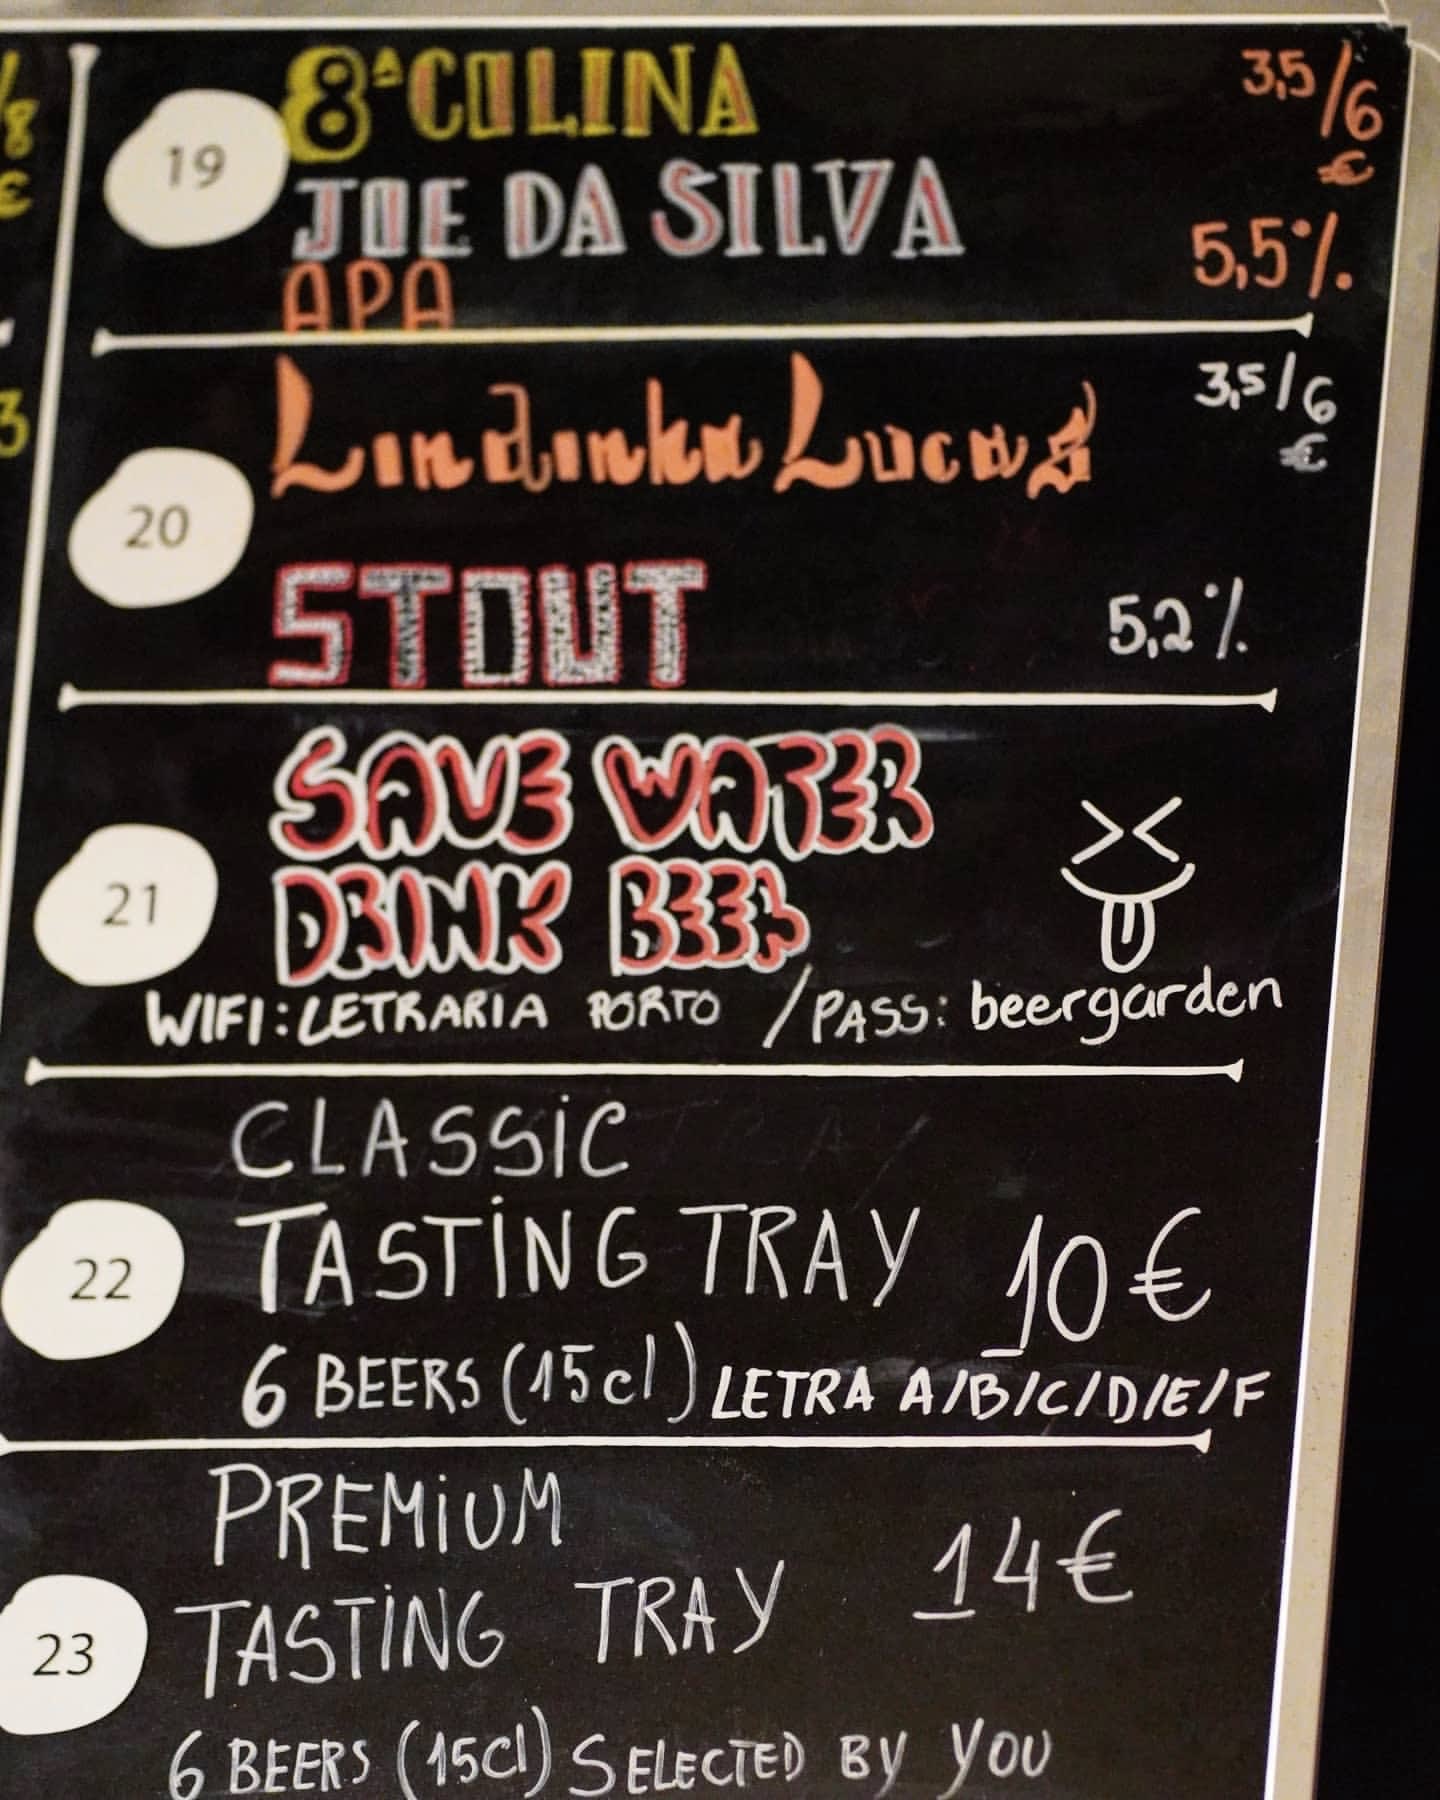 /8
€
3
19
8ª COLINA
3,5/6
€
JOE DA SILVA
5,5%
APA
20
Lindinha Lucas
3,5/6
€
STOUT
5,2%
21
SAVE WATER
DRINK BEER
WIFI: LETRARIA PORTO / PASS: beergarden
22
CLASSIC
TASTING TRAY 10€
6 BEERS (15cl) LETRA A/B/C/D/E/F
23
PREMIUM
TASTING TRAY 14€
6 BEERS (15cl) SELECTED BY YOU